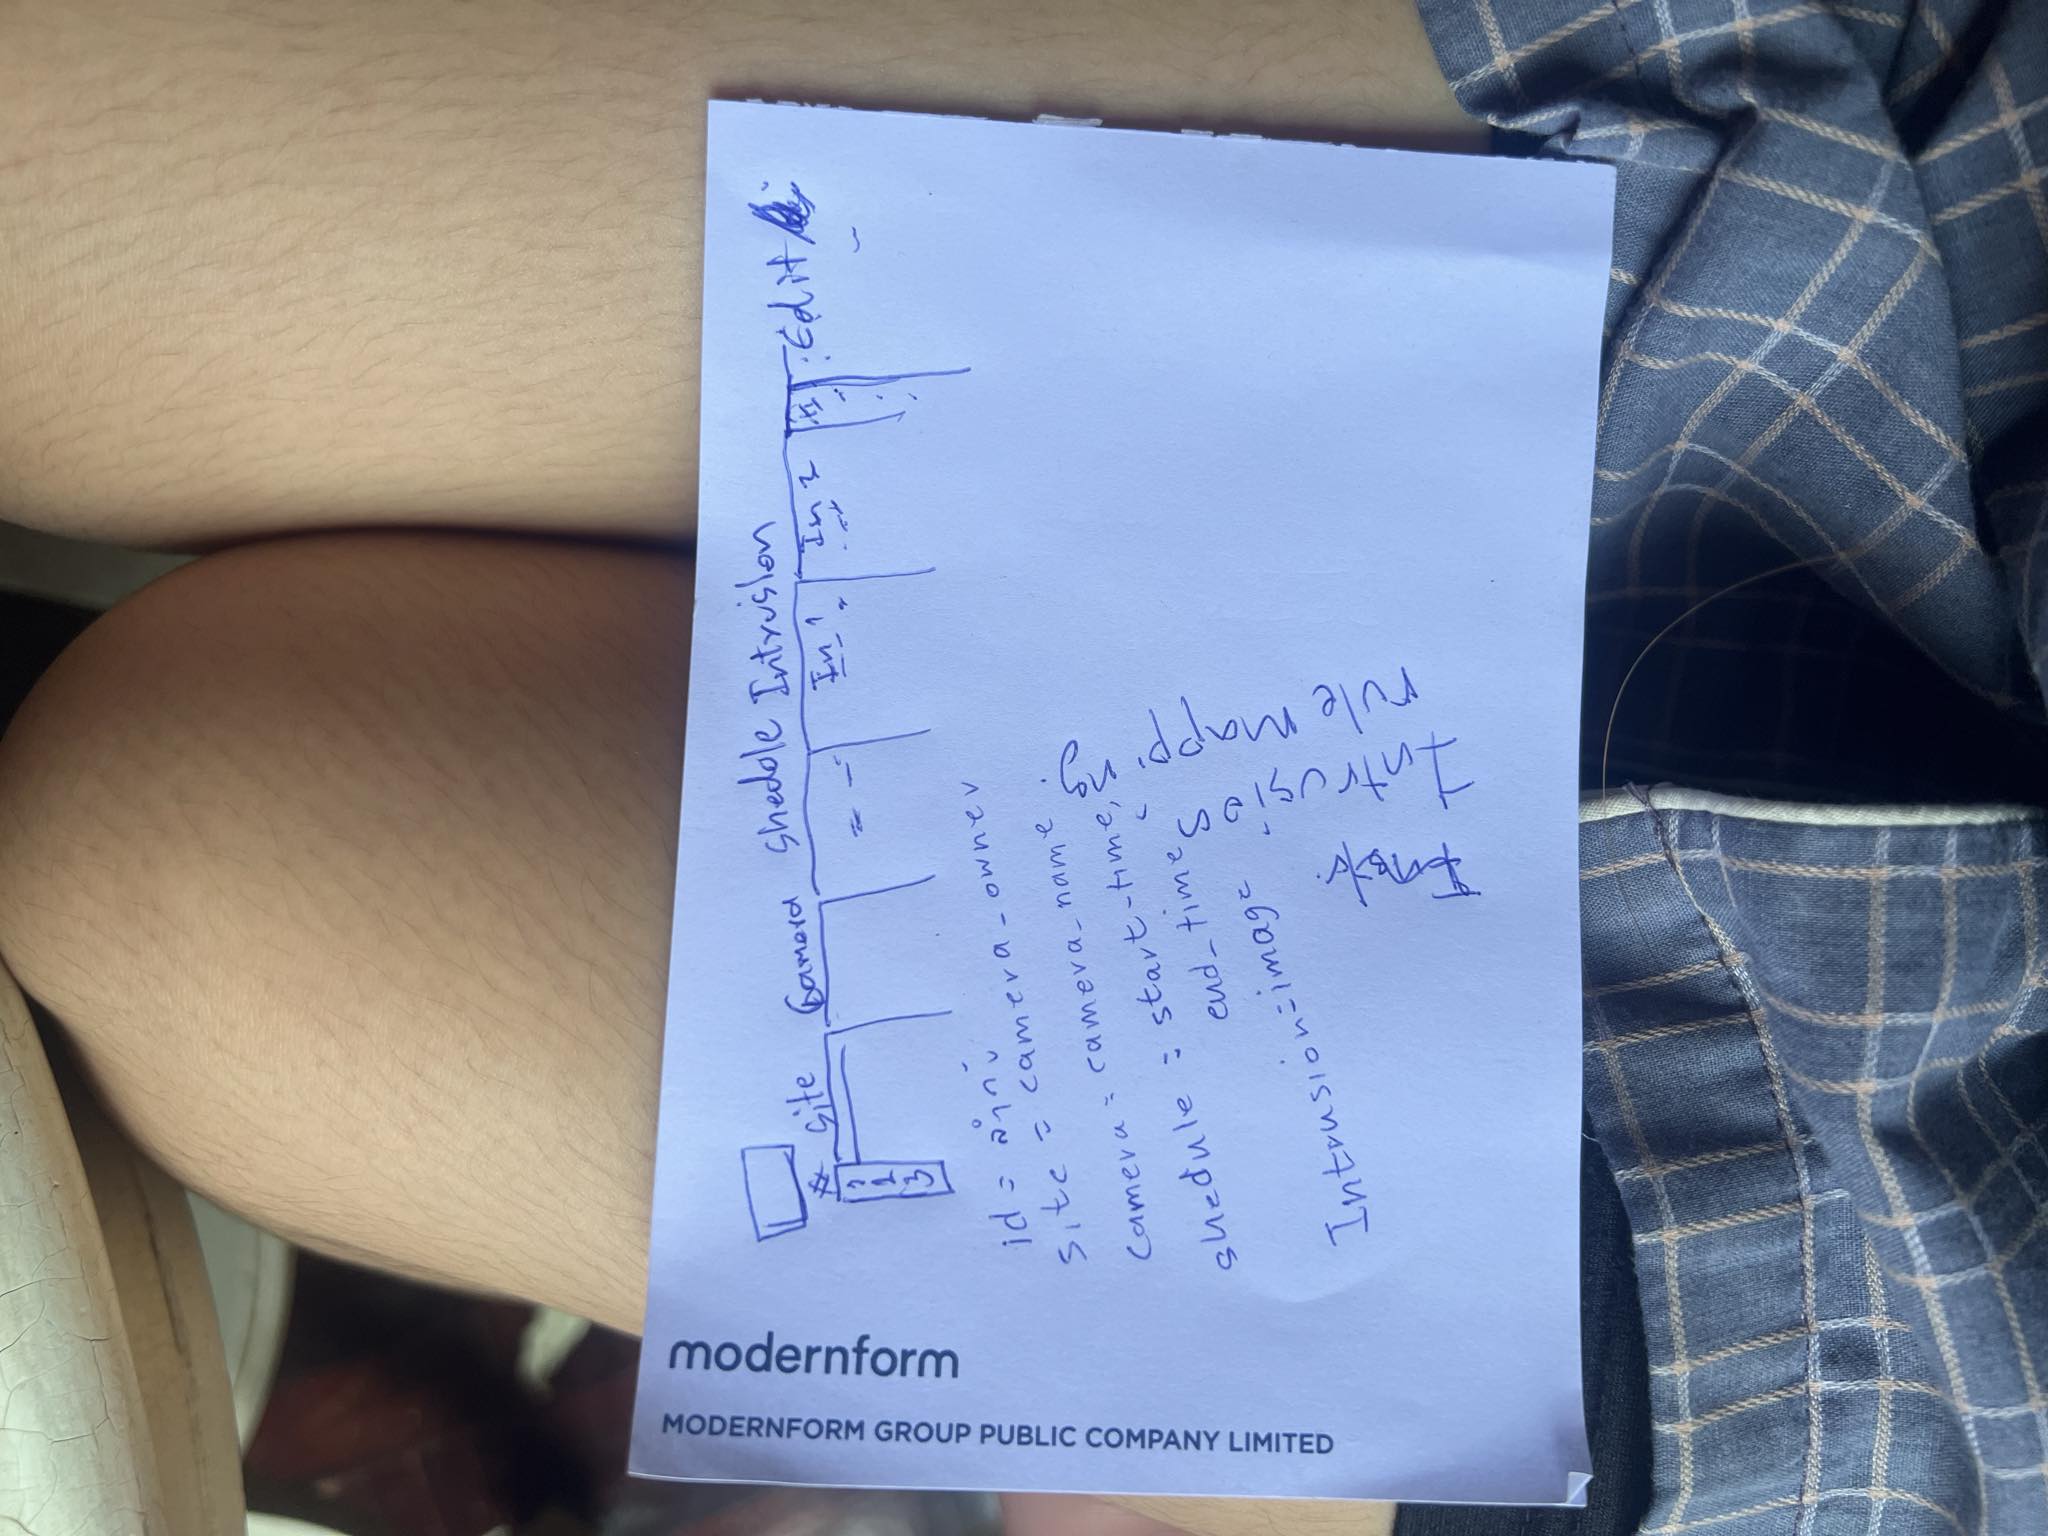 modernform
MODERNFORM GROUP PUBLIC COMPANY LIMITED
# site Camera Shedole Intrusion
In 1 In 2 Edit
1
2
3
id = ลำดับ
site = camera_owner
camera = camera_name
shedule = start-time,
end_time
Intrusion = image
Intrusion
rule mapping